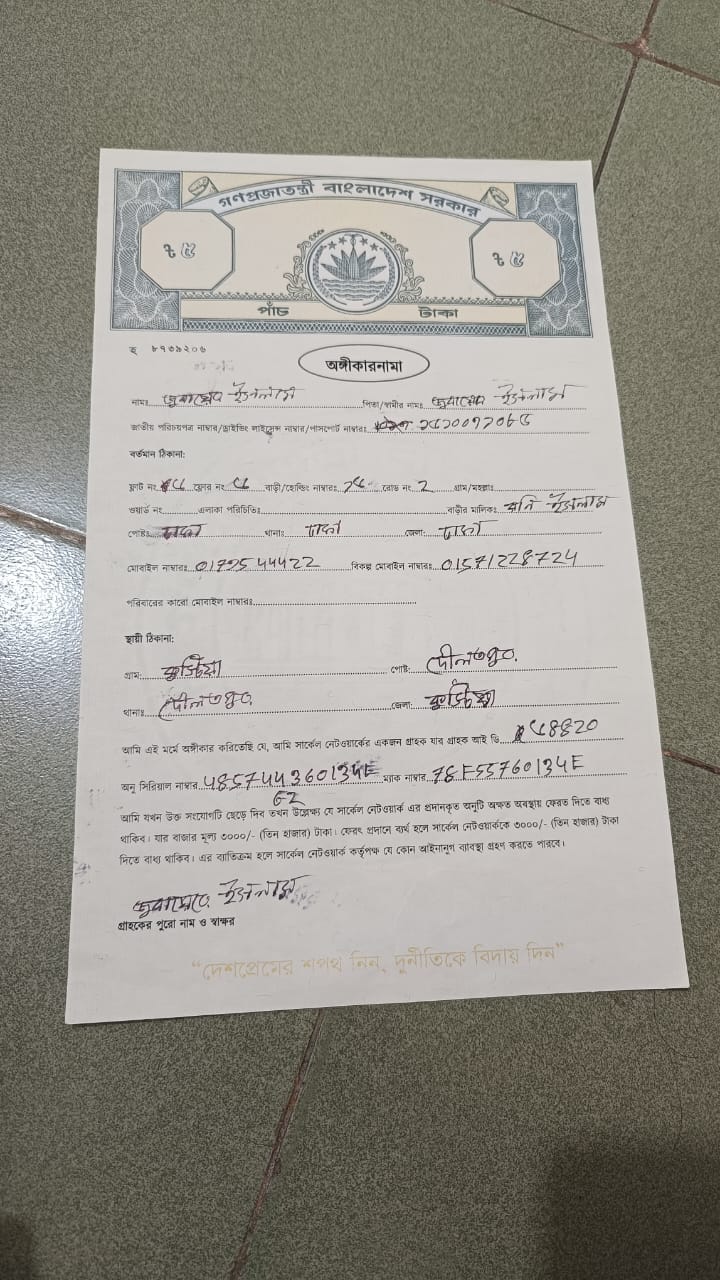 গণপ্রজাতন্ত্রী বাংলাদেশ সরকার
৳ ৫ ৳ ৫
পাঁচ টাকা
অঙ্গীকারনামা
নামঃ ইসলাম পিতা/স্বামীর নামঃ ইসলাম
জাতীয় পরিচয়পত্র নাম্বার/ড্রাইভিং লাইসেন্স নাম্বার/পাসপোর্ট নাম্বারঃ
বর্তমান ঠিকানা:
ফ্লাট নং ফ্লোর নং বাড়ী/হোল্ডিং নাম্বারঃ রোড নং 2 গ্রাম/মহল্লাঃ
ওয়ার্ড নং এলাকা পরিচিতিঃ বাড়ীর মালিকঃ মনি ইসলাম
পোষ্টঃ ঢাকা থানাঃ ঢাকা জেলা: ঢাকা
মোবাইল নাম্বারঃ বিকল্প মোবাইল নাম্বারঃ 01571228724
পরিবারের কারো মোবাইল নাম্বারঃ
স্থায়ী ঠিকানা:
গ্রামঃ কুষ্টিয়া পোষ্ট: দৌলতপুর
থানাঃ দৌলতপুর জেলা: কুষ্টিয়া
আমি এই মর্মে অঙ্গীকার করিতেছি যে, আমি সার্কেল নেটওয়ার্কের একজন গ্রাহক যার গ্রাহক আই ডি
অনু সিরিয়াল নাম্বার 485744360134E ম্যাক নাম্বার 78F55760134E
62
আমি যখন উক্ত সংযোগটি ছেড়ে দিব তখন উল্লেখ্য যে সার্কেল নেটওয়ার্ক এর প্রদানকৃত অনুটি অক্ষত অবস্থায় ফেরত দিতে বাধ্য
থাকিব। যার বাজার মূল্য ৩০০০/- (তিন হাজার) টাকা। ফেরৎ প্রদানে ব্যর্থ হলে সার্কেল নেটওয়ার্ককে ৩০০০/- (তিন হাজার) টাকা
দিতে বাধ্য থাকিব। এর ব্যতিক্রম হলে সার্কেল নেটওয়ার্ক কর্তৃপক্ষ যে কোন আইনানুগ ব্যবস্থা গ্রহণ করতে পারবে।
ইসলাম
গ্রাহকের পুরো নাম ও স্বাক্ষর
“দেশপ্রেমের শপথ নিন, দুর্নীতিকে বিদায় দিন”